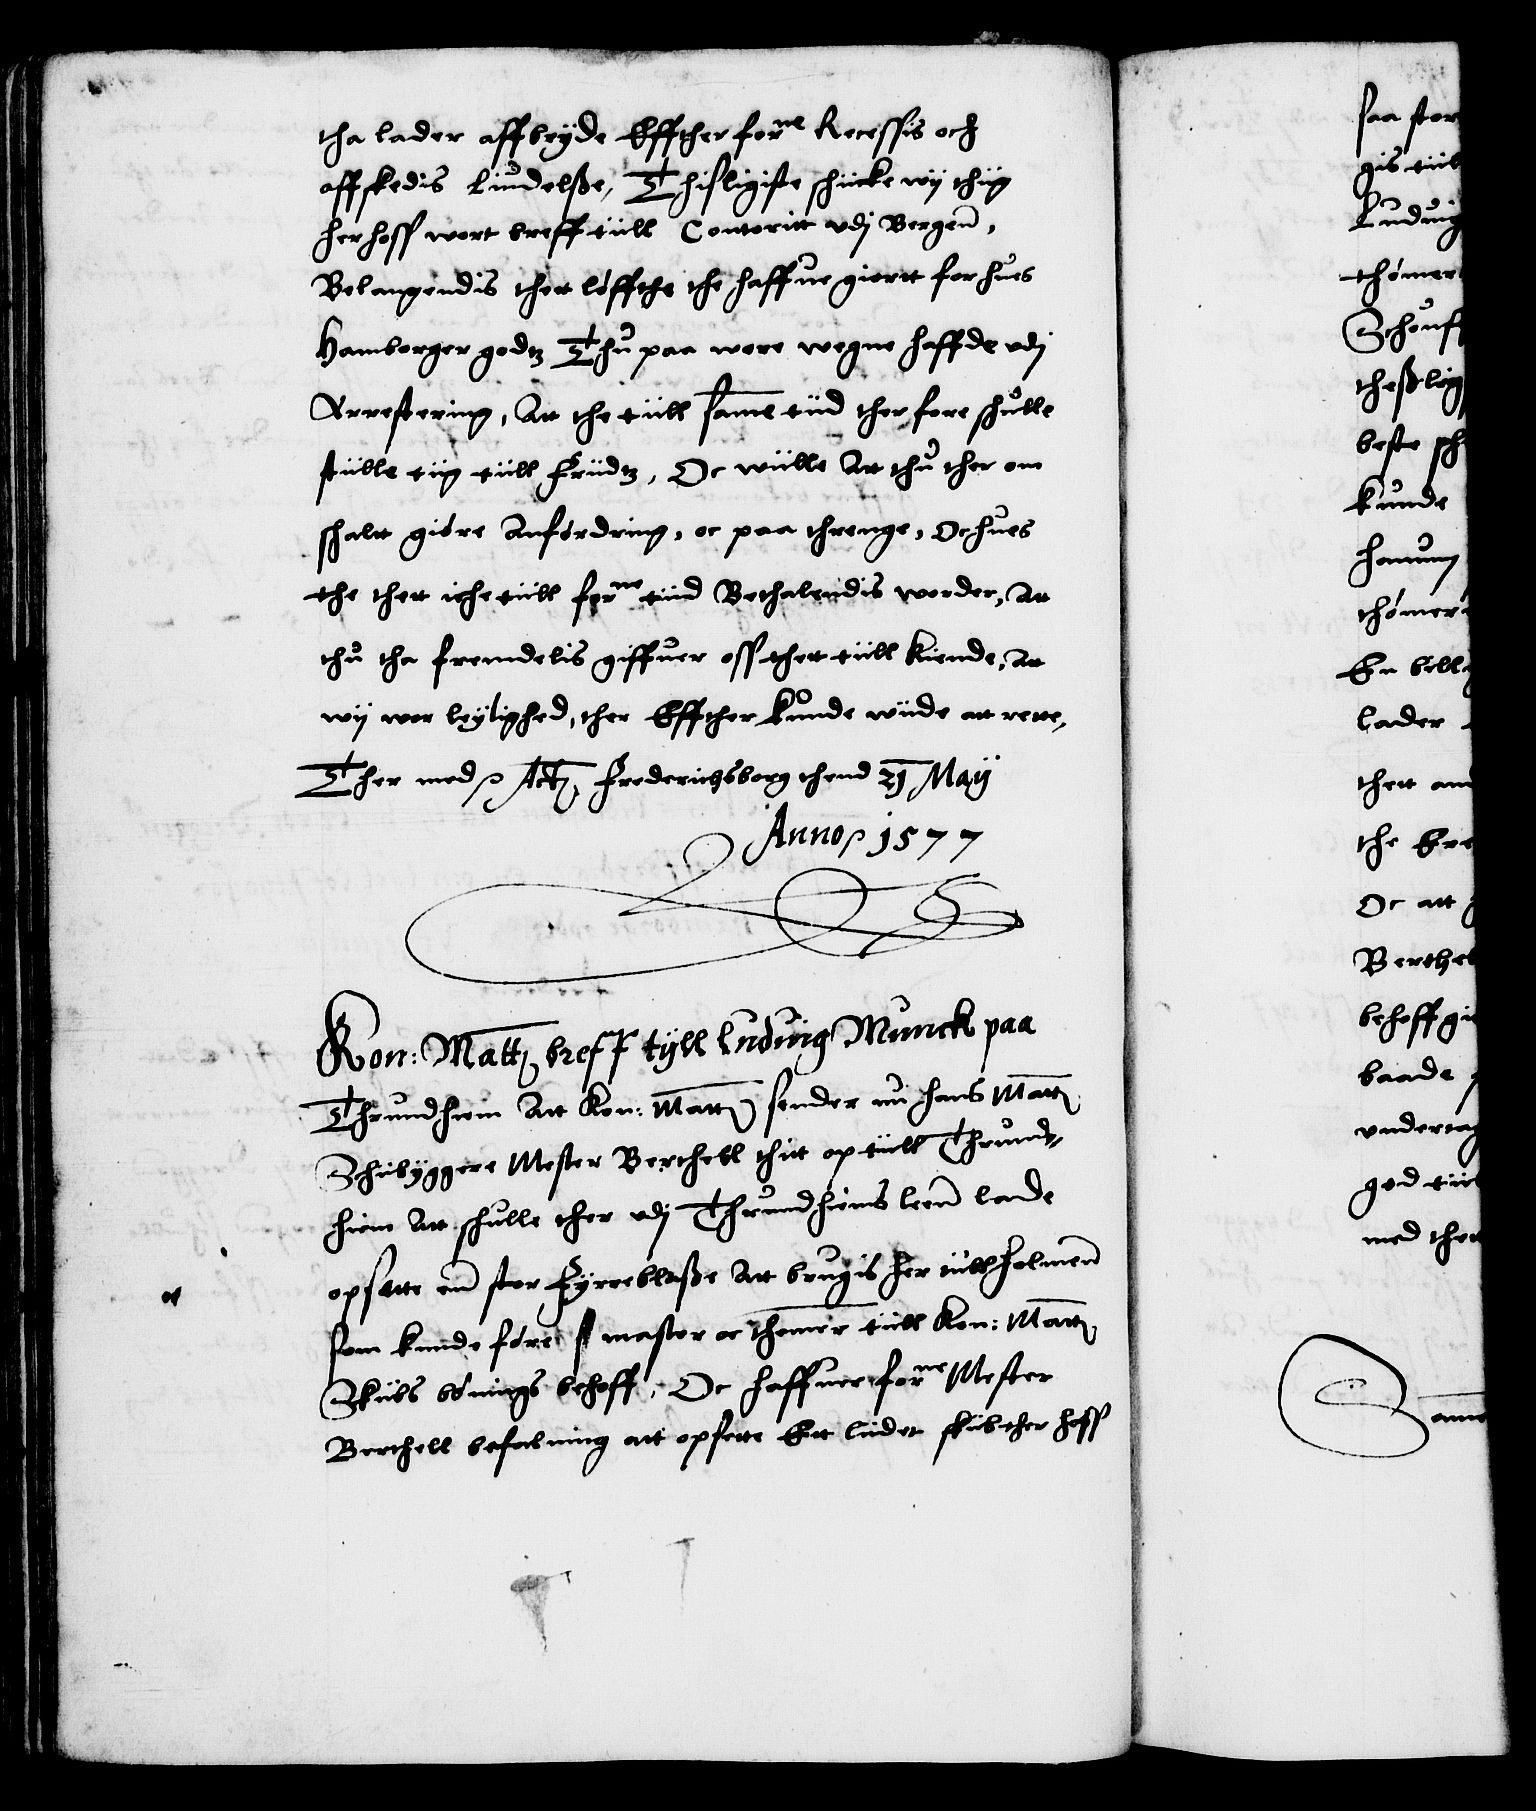 tha lader affbryde Effther forne Recessis och
affskedis liudelsße, Thisligiste schicke wij thiig
her hoss wort breff tiill Contoritt vdj Bergenn,
Belangendis thett löffthe the haffue giortt for hues
Hamborger godtz Thu paa wore wegne haffde vdj
Arrestering, Att the tiill same tiid ther fore schulle
stiille tiig tiill fridtz, Oc wiille Att thu ther om
schaltt giöre Anfordring, oc paa threnge, Oc hues
the thett iche tiill forne tiid Bethalendis worder, Att
thu tha fremdelis giffuer oss thett tiill kiende, Att
wij wor leylighed, ther Effther kunde wiide att rette,
Ther med etc Actum Frederichsborg thend 21 Maij
Anno 1577
Kon: Matts breff tyll Luduig Munck paa
Thrundhiem Att Kon: Matt sender nu hans Matts
Schibyggere Mester Berthell thiit op tiill Thrund-
hiem Att schulle ther vdj Thrundhiems leenn lade
opsette enn stor Fyrreblaße Att brugis her tiill holmenn
som kunde före master oc thömer tiill Kon: Matts
Skiibs bönings behoff, Oc haffuer forne Mester
Berthell befalning att opsette Ett lidet skiib ther hoss
saa stor
gis tiil
Luduig
thömer
Schouff
theßlig
beste sch
kunde
hanum
thömer
En bell
lader
thett an
the Ere
Oc att
Berthel
behoff gi
baade
vndertag
god tiil
med thet
Same